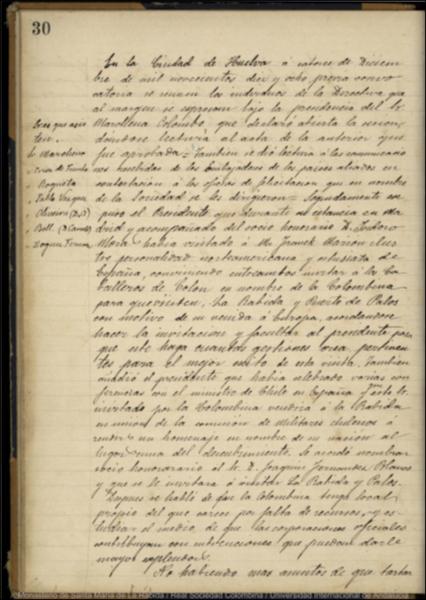 30
En la Ciudad de Huelva á catorce de Diciem
bre de mil novecientos diez y ocho previa convo
catoria se reunen los individuos de la Directiva que
al margen se expresan bajo la presidencia del Sr.
Marchena Colombo, que declaró abierta la sesion,
dándose lectura al acta de la anterior que
fue aprobada = Tambien se dió lectura á las comunicacio
nes recibidas de los Embajadores de los paises aliados en
contestación á los oficios de felicitacion que en nombre
de la Sociedad se les dirigieron = Seguidamente ex
puso el Presidente que durante su estancia en Ma
drid y acompañado del socio honorario D.
Mora habia visitado á Mr.
personalidad norteamericana y entusiasta de
España, conviniendo entrambos invitar á los Ca
balleros de Colon en nombre de la Colombina
para que visiten, La Rabida y Puerto de Palos
con motivo de su venida á Europa, acordandose
hacer la invitacion y facultar al presidente para
que este haga cuantas gestiones crea pertinen
tes para el mejor exito de esta visita. Tambien
añadió el presidente que habia celebrado varias con
ferencias con el ministro de Chile en España y este
invitado por la Colombina vendria á la Rabida
en union de la comision de Militares chilenos á
rendir un homenaje en nombre de su nacion al
lugar cuna del descubrimiento. Se acordó nombrar
socio honorario al Sr. D. Joaquin Fernandez Blanco
y que se le invitara á visitar La Rabida y Palos.
Despues se habló de que la Colombina tenga local
propio del que carece por falta de recursos y es
tudiar el medio de que las corporaciones oficiales
contribuyan con subvenciones que puedan darle
mayor esplendor.
No habiendo mas asuntos de que tratar
Sres que asis
ten.
Sr Marchena
Roqueta
Pablo Vazquez
Oliveira
Monasterio de Santa María de La Rábida / Real Sociedad Colombina / Universidad Internacional de Andalucía